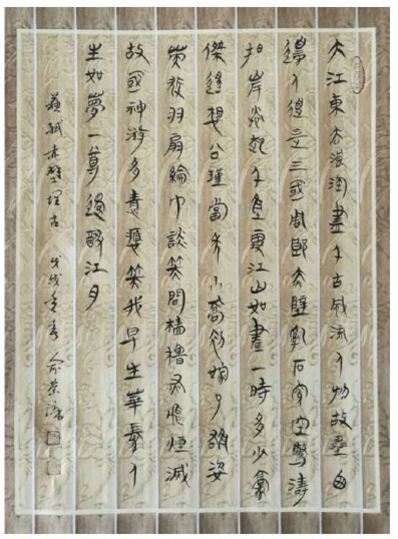 大江東去浪淘盡千古風流人物故壘西
邊人道是三國周郎赤壁亂石穿空驚濤
拍岸捲起千堆雪江山如畫一時多少豪
傑遙想公瑾當年小喬初嫁了雄姿
英發羽扇綸巾談笑間檣櫓灰飛煙滅
故國神游多情應笑我早生華髮人
生如夢一尊還酹江月
蘇軾赤壁懷古 戊戌